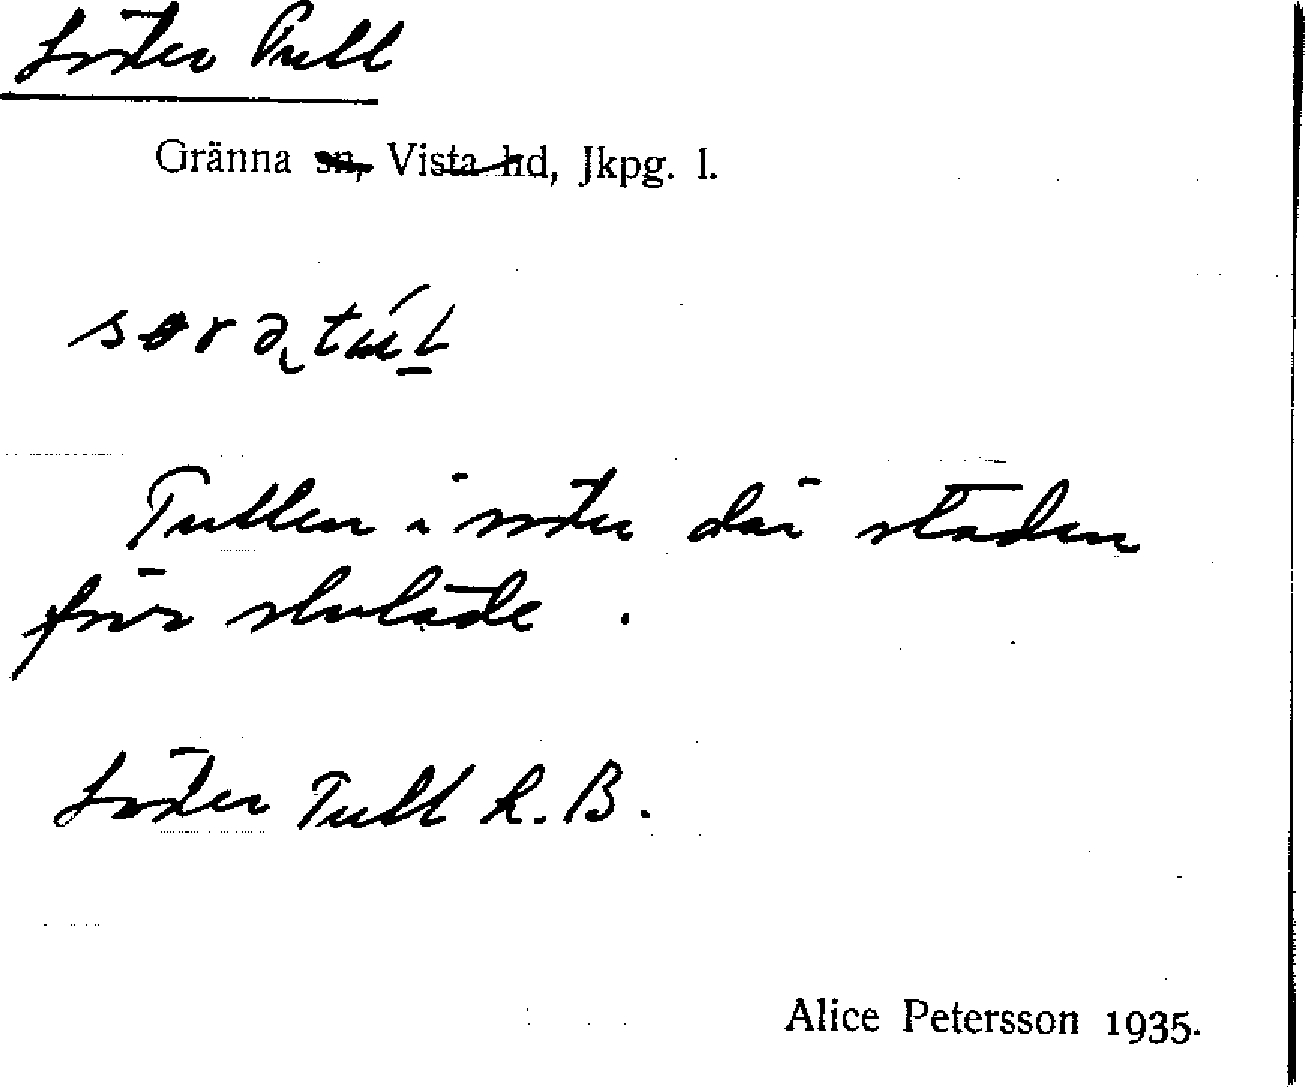 Söder Tull
Gränna sn, Vista hd, Jkpg. l.
Tullen i söder där staden
förr slutade.
Söder Tull R. B.
Alice Petersson 1935.